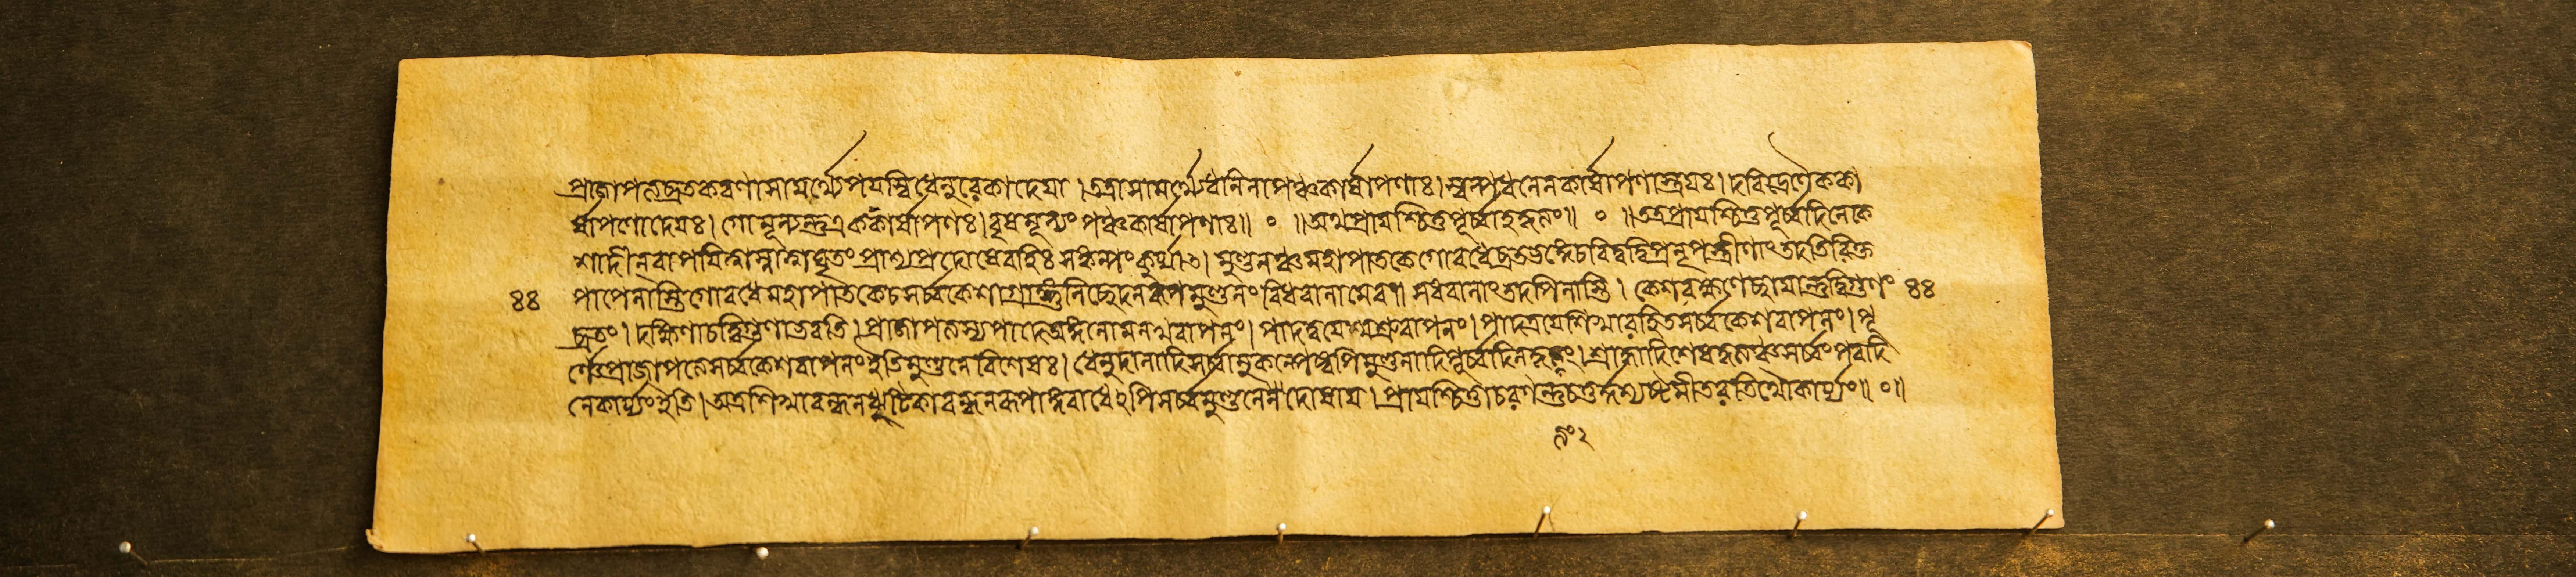 প্রাজাপত্যব্রতকরণাসামর্থ্যেপযস্বিধেনুরেকাদেযা।তত্রাসামর্থ্যেধনিনাপঞ্চকার্ষাপণাঃ।স্বল্পধনেনকার্ষাপণাস্ত্রযঃ।দরিদ্রেণৈককা
র্ষাপণোদেযঃ।গোমূল্যন্তুএককার্ষাপণঃ।বৃষমূল্যং পঞ্চকার্ষাপণাঃ॥ ॰ ॥অথপ্রাযশ্চিত্তপূর্ব্বাহকৃত্যং॥ ॰ ॥তত্রপ্রাযশ্চিত্তপূর্ব্বদিনেকে
শাদীনবাপযিত্বাস্নাত্বাঘৃতংপ্রাশ্যপ্রদোষেবহিঃসংকল্পংকুর্য্যাৎ। মুণ্ডনঞ্চমহাপাতকেগোবধেব্রতভঙ্গেচবিদ্বদ্বিপ্রনৃপস্ত্রীণাংতদতিরিক্ত
৪৪ পাপেনাস্তিগোবধেমহাপাতকেচসর্ব্বকেশাগ্রাঙ্গুলিচ্ছেদনরূপমুণ্ডনং বিধবানামেব। সধবানাংতদপিনাস্তি। কেশরক্ষণেচ্ছাযান্তুদ্বিগুণং ৪৪
ব্রতং।দক্ষিণাচদ্বিগুণাভবতি।প্রাজাপত্যস্যপাদেঅঙ্গলোমনখবাপনং। পাদদ্বযেশ্মশ্রুবাপনং।পাদত্রযেশিখারহিতসর্ব্বকেশবাপনং।পূ
র্ণেপ্রাজাপত্যেসর্ব্বকেশবাপনংইতিমুণ্ডনেবিশেষঃ। ধেনুদানাদিসর্ব্বানুকল্পেষ্বপিমুণ্ডনাদিপূর্ব্বদিনকৃত্যং।শ্রাদ্ধাদিশেষকৃত্যঞ্চসর্ব্বংপরদি
নেকার্য্যংইতি।অত্রশিখাবন্ধনঝুটিকাবন্ধনরূপাঙ্গবাধেঽপিসর্ব্বমুণ্ডনেনদোষায। প্রাযশ্চিত্তাচরণন্তুচতুর্দ্দশ্যষ্টমীতরতিথৌকার্য্যং॥ ॰॥